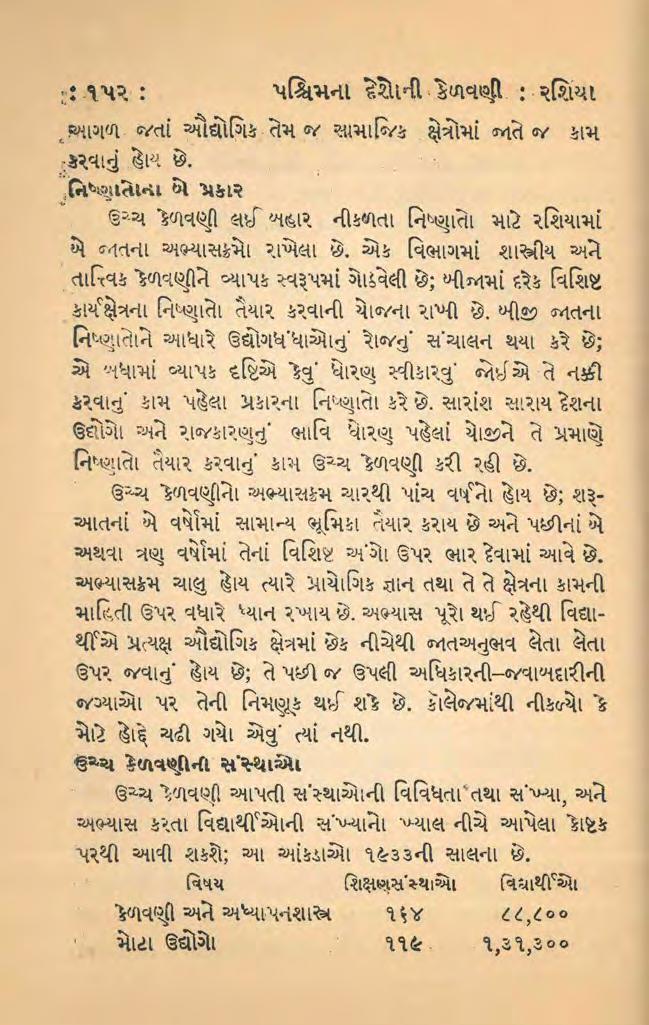 : ૧૫૨ : પશ્ચિમના દેશોની કેળવણી : રશિયા
આગળ જતાં ઔદ્યોગિક તેમ જ સામાજિક ક્ષેત્રોમાં જાતે જ કામ
કરવાનું હોય છે.
નિષ્ણાતોના બે પ્રકાર
ઉચ્ચ કેળવણી લઈ બહાર નીકળતા નિષ્ણાતો માટે રશિયામાં
બે જાતના અભ્યાસક્રમો રાખેલા છે. એક વિભાગમાં શાસ્ત્રીય અને
તાત્ત્વિક કેળવણીને વ્યાપક સ્વરૂપમાં ગોઠવેલી છે; બીજામાં દરેક વિશિષ્ટ
કાર્યક્ષેત્રના નિષ્ણાતો તૈયાર કરવાની યોજના રાખી છે. બીજી જાતના
નિષ્ણાતોને આધારે ઉદ્યોગધંધાઓનું રોજનું સંચાલન થયા કરે છે;
એ બધામાં વ્યાપક દૃષ્ટિએ કેવું ધોરણ સ્વીકારવું જોઈએ તે નક્કી
કરવાનું કામ પહેલા પ્રકારના નિષ્ણાતો કરે છે. સારાંશ સારાય દેશના
ઉદ્યોગો અને રાજકારણનું ભાવિ ધોરણ પહેલાં યોજીને તે પ્રમાણે
નિષ્ણાતો તૈયાર કરવાનું કામ ઉચ્ચ કેળવણી કરી રહી છે.
ઉચ્ચ કેળવણીનો અભ્યાસક્રમ ચારથી પાંચ વર્ષનો હોય છે; શરૂ-
આતનાં બે વર્ષોમાં સામાન્ય ભૂમિકા તૈયાર કરાય છે અને પછીનાં બે
અથવા ત્રણ વર્ષોમાં તેનાં વિશિષ્ટ અંગો ઉપર ભાર દેવામાં આવે છે.
અભ્યાસક્રમ ચાલુ હોય ત્યારે પ્રાયોગિક જ્ઞાન તથા તે તે ક્ષેત્રના કામની
માહિતી ઉપર વધારે ધ્યાન રખાય છે. અભ્યાસ પૂરો થઈ રહેથી વિદ્યા-
ર્થીએ પ્રત્યક્ષ ઔદ્યોગિક ક્ષેત્રમાં છેક નીચેથી જાતઅનુભવ લેતા લેતા
ઉપર જવાનું હોય છે; તે પછી જ ઉપલી અધિકારની–જવાબદારીની
જગ્યાઓ પર તેની નિમણૂક થઈ શકે છે. કૉલેજમાંથી નીકળ્યો કે
મોટે હોદ્દે ચઢી ગયો એવું ત્યાં નથી.
ઉચ્ચ કેળવણીની સંસ્થાઓ
ઉચ્ચ કેળવણી આપતી સંસ્થાઓની વિવિધતા તથા સંખ્યા, અને
અભ્યાસ કરતા વિદ્યાર્થીઓની સંખ્યાનો ખ્યાલ નીચે આપેલા કોષ્ટક
પરથી આવી શકશે; આ આંકડાઓ ૧૯૩૩ની સાલના છે.
વિષય શિક્ષણસંસ્થાઓ વિદ્યાર્થીઓ
કેળવણી અને અધ્યાપનશાસ્ત્ર ૧૬૪ ૮૮,૮૦૦
મોટા ઉદ્યોગો ૧૧૯ ૧,૩૧,૩૦૦